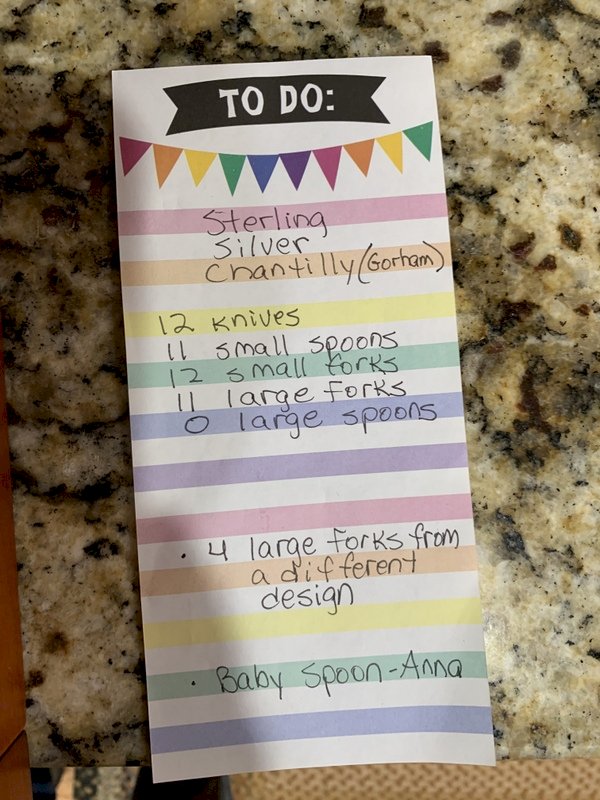 TO DO:
Sterling
Silver
Chantilly (Gorham)
12 knives
11 small spoons
12 small forks
11 large forks
0 large spoons
. 4 large forks from
a different
design
. Baby Spoon - Anna